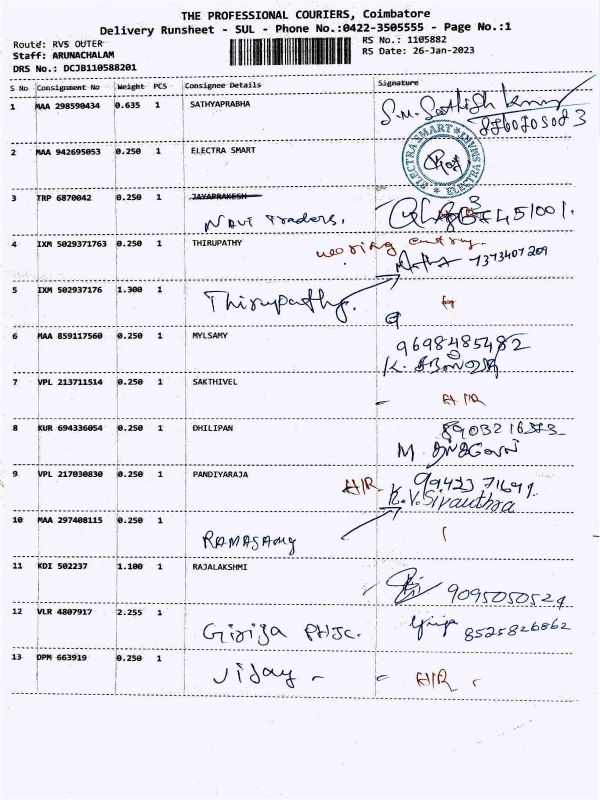 THE PROFESSIONAL COURIERS, Coimbatore
Delivery Runsheet - SUL - Phone No.:0422-3505555 - Page No.:1
Route: RVS OUTER
RS No.: 1105882
Staff: ARUNACHALAM
RS Date: 26-Jan-2023
DRS No.: DCJB110588201
S No Consignment No Weight PCS Consignee Details Signature
1 MAA 298590434 0.635 1 SATHYAPRABHA
2 MAA 942695053 0.250 1 ELECTRA SMART
ELECTRA SMART
3 TRP 6870042 0.250 1 JAYAPRAKESH
Navi Traders.
4 IXM 5029371763 0.250 1 THIRUPATHY
7373407209
5 IXM 502937176 1.300 1
Thirupathy.
6 MAA 859117560 0.250 1 MYLSAMY
9698485482
7 VPL 213711514 0.250 1 SAKTHIVEL
8 KUR 694336054 0.250 1 DHILIPAN
9 VPL 217030830 0.250 1 PANDIYARAJA
10 MAA 297408115 0.250 1
RAMASAMY
11 KDI 502237 1.100 1 RAJALAKSHMI
9095050524
12 VLR 4807917 2.255 1
8525826862
13 DPM 663919 0.250 1
Vijay